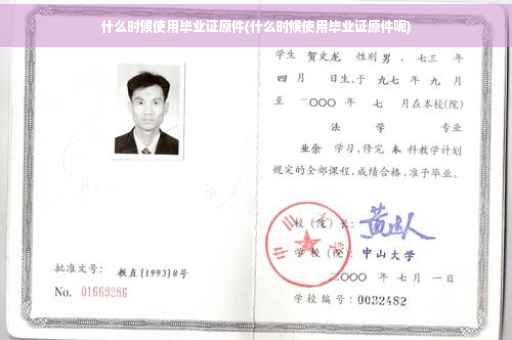 什么时候使用毕业证原件(什么时候使用毕业证原件呢)
学生 贺文龙 性别男，七三 年
四 月 日生，于 九七 年 九 月
至 二〇〇〇 年 七 月在本校(院)
法 学 专业
业余 学习，修完 本 科教学计划
规定的全部课程，成绩合格，准予毕业。
校（院）长：
学 校（院）：中山大学
二〇〇〇 年 七 月 一 日
学校编号：0032482
批准文号： 教直(1993)8号
No. 01669286